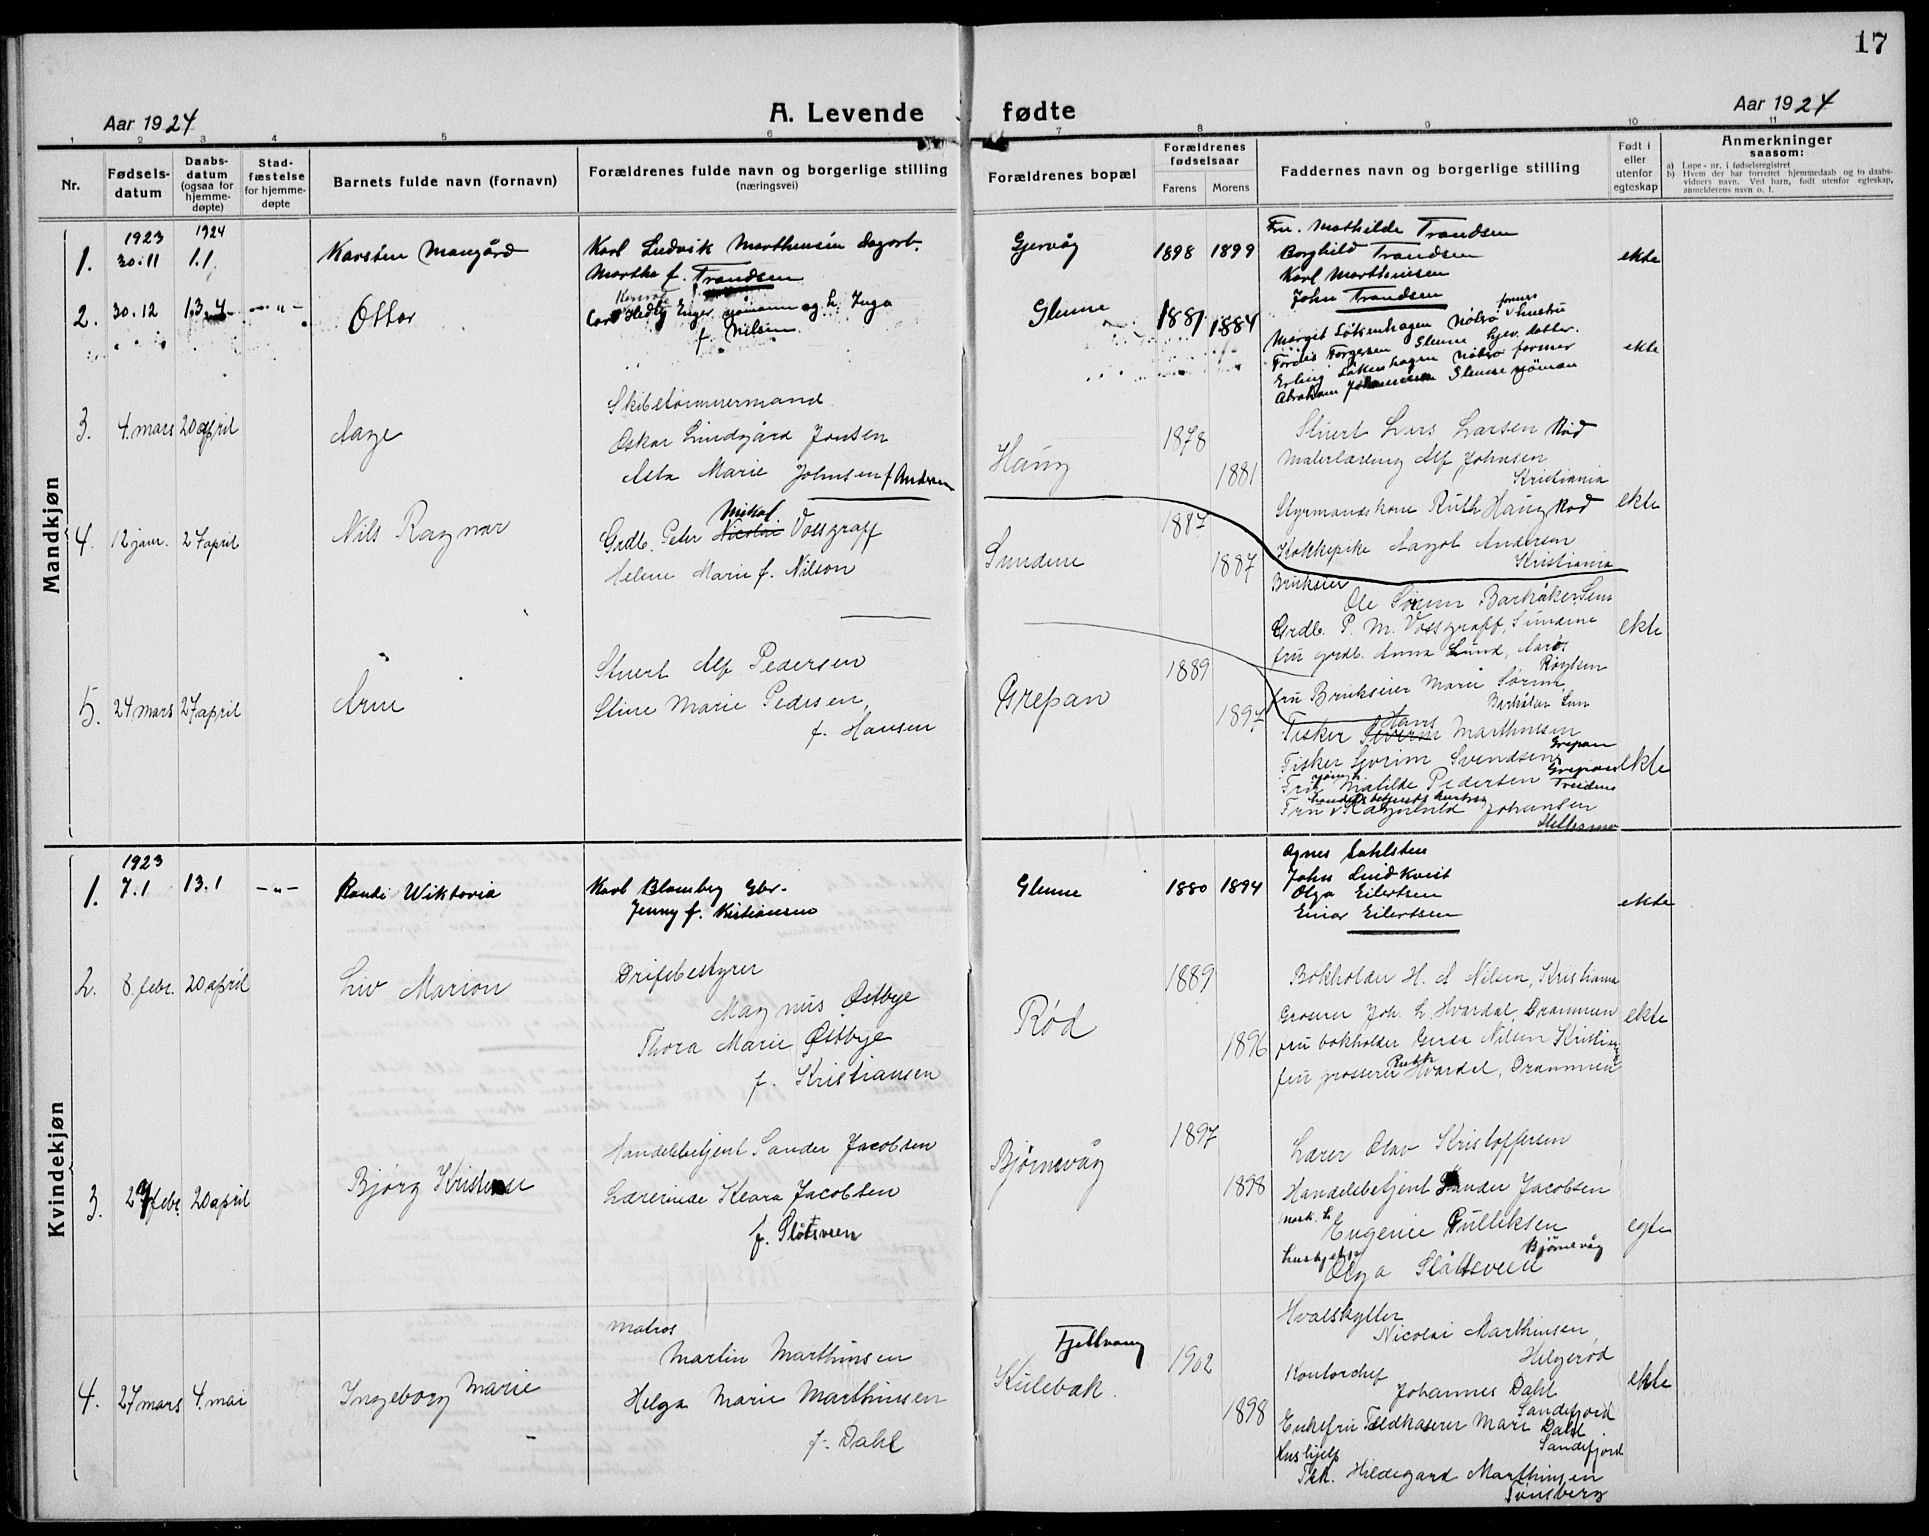 17
Aar 1924
A. Levende fødte
Aar 1924
1 2 3 4 5 6 7 8 9 10 11
Nr.
Fødsels-datum
Daabs-datum (ogsaa for hjemme-døpte)
Stad-fæstelse for hjemme-døpte
Barnets fulde navn (fornavn)
Forældrenes fulde navn og borgerlige stilling (næringsvei)
Forældrenes bopæl
Forældrenes fødselsaar
Farens Morens
Faddernes navn og borgerlige stilling
Født i eller utenfor egteskap
Anmerkninger saasom:
a) Løpe-nr. i fødselsregistret
b) Hvem der har forrettet hjemmedaab og to daabs-vidners navn. Ved barn, født utenfor egteskap, anmelderens navn o. l.
Mandkjøn
1923 1924
1. 30.11 1.1 Karsten Mangård
Karl Ludvik Marthinsen dagarb.
Martha f. Trandsen
Gjervåg 1898 1899
Fru. Mathilde Trandsen
Borghild Trandsen
Karl Marthinsen
John Trandsen
ekte
2. 30.12 13.4 -"- Ottar
Konrad
Carl Hedly Enger sjømann og h. Inga
f. Nilsen
Glenne 1881 1884
Margit Løkenhagen Nøterø formers hustru
Tordis Torgersen Glenne hjev. datter.
Erling Løkenhagen Nøterø former
Abraham Johannesen Glenne sjöman
ekte
3. 4. mars 20 april Aage
Skibstømmermand
Oskar Lindgård Jonsen
Asta Marie Johnsen f. Andersen
Haug 1878 1881
Stuert Lars Larsen Rød
Malerlærling Alf Johnsen
Kristiania
Styrmandskone Ruth Haug Rød
Kokkepike Aagot Andersen
Kristiania
ekte
4. 12 janr. 27 april Nils Ragnar
Mikal
Grdb. Peter Nicolai Vossgraff
Helene Marie f. Nilson
Sundene 1887 1887
Brukseier
Ole Sørum Barkåker, Sem
Grdb. P. M. Vossgraff, Sundene
fru grdb. Anna Lund, Aarøs
Røyken
fru Brukseier Marie Sørum,
Barkåker Sem
ekte
5. 24 mars 27 april Arne
Stuert Alf Pedersen
Stine Marie Pedersen,
f. Hansen
Grepan 1889 1897
Hans
Fisker Severin Marthinsen
Grepan
Fisker Severin Svendsen
Grepan
Fru Matilde Pedersen Treidene
handelsbetjents hustru
Fru Ragnhild Johansen
ekte
Kvindekjøn
1923
1. 7.1 13.1 -"- Randi Wiktoria
Karl Blomberg Gbr.
Jenny f. Kristiansen
Glenne 1880 1894
Agnes Dahlsten
John Lindkvist
Olga Eilertsen
Einar Eilertsen
ekte
2. 8. febr. 20 april Liv Marion
Driftsbestyrer
Magnus Østbye
Thora Marie Østbye
f. Kristiansen
Rød 1889 1896
Bokholder H. A Nilsen, Kristiania
Grosserer Joh. L. Hvardal, Drammen
fru bokholder Gerda Nilsen Kristiania
Ruth
fru grosserer Hvardal, Drammen
ekte
3. 27 febr. 20 april Bjørg Kristense
Handelsbetjent Sander Jacobsen
Lærerinde Klara Jacobsen
f. Slåtsveen
Bjørnevåg 1897 1898
Lærer Olav Kristoffersen
Handelsbetjent Sander Jacobsen
Eugenie Gulliksen
Bjørnevåg
Olga Slåtsveen
egte
4. 27 mars 4. mai Ingeborg Marie
matros
Martin Marthinsen
Helga Marie Marthinsen
f. Dahl
Fjellvang
Kulebak. 1902 1898
Hvalskytter
Nicolai Marthinsen,
Helgerød
Kontorchef
Johannes Dahl
Sandefjord
Enkefru Toldkaserer Mari Dahl
Sandefjord
Hushjelp
Frk. Hildegard Marthinsen
Tønsberg
ekte